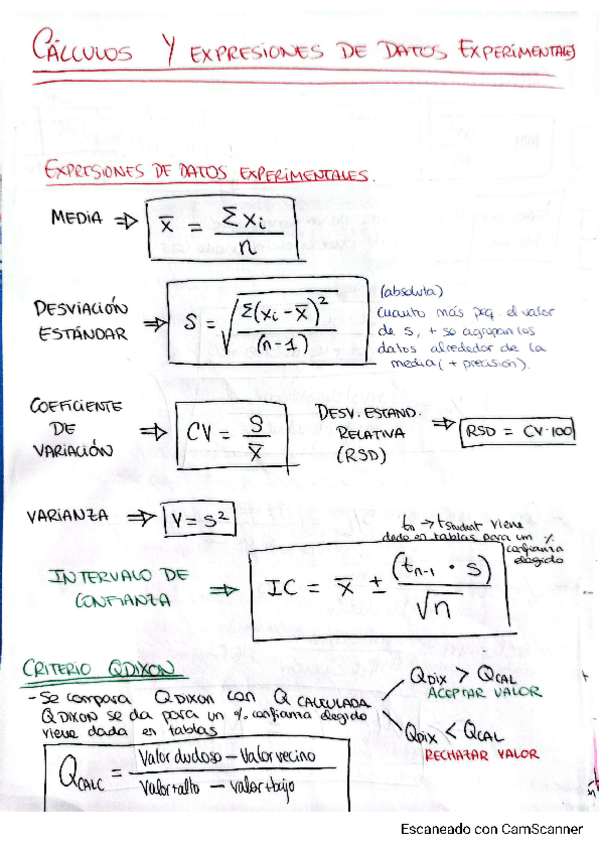 CÁLCULOS Y EXPRESIONES DE DATOS EXPERIMENTALES
EXPRESIONES DE DATOS EXPERIMENTALES.
MEDIA ⇒ x̄ = Σxi / n
DESVIACIÓN ESTÁNDAR ⇒ S = √(Σ(xi - x̄)² / (n-1))
(absoluta)
cuanto más peq. el valor
de s, + se agrupan los
datos alrededor de la
media (+ precisión).
COEFICIENTE DE VARIACIÓN ⇒ CV = S / x̄
DESV. ESTAND. RELATIVA (RSD) ⇒ RSD = CV·100
VARIANZA ⇒ V = S²
tn → tstudent viene
dado en tablas para un %
confianza
elegido
INTERVALO DE CONFIANZA ⇒ IC = x̄ ± (tn-1 · s) / √n
CRITERIO QDIXON
- Se compara QDIXON con Q CALCULADA
QDIXON se da para un % confianza elegido
viene dada en tablas
QDIX > QCAL
ACEPTAR VALOR
QDIX < QCAL
RECHAZAR VALOR
QCALC = Valor dudoso - Valor vecino / Valor + alto - valor + bajo
Escaneado con CamScanner